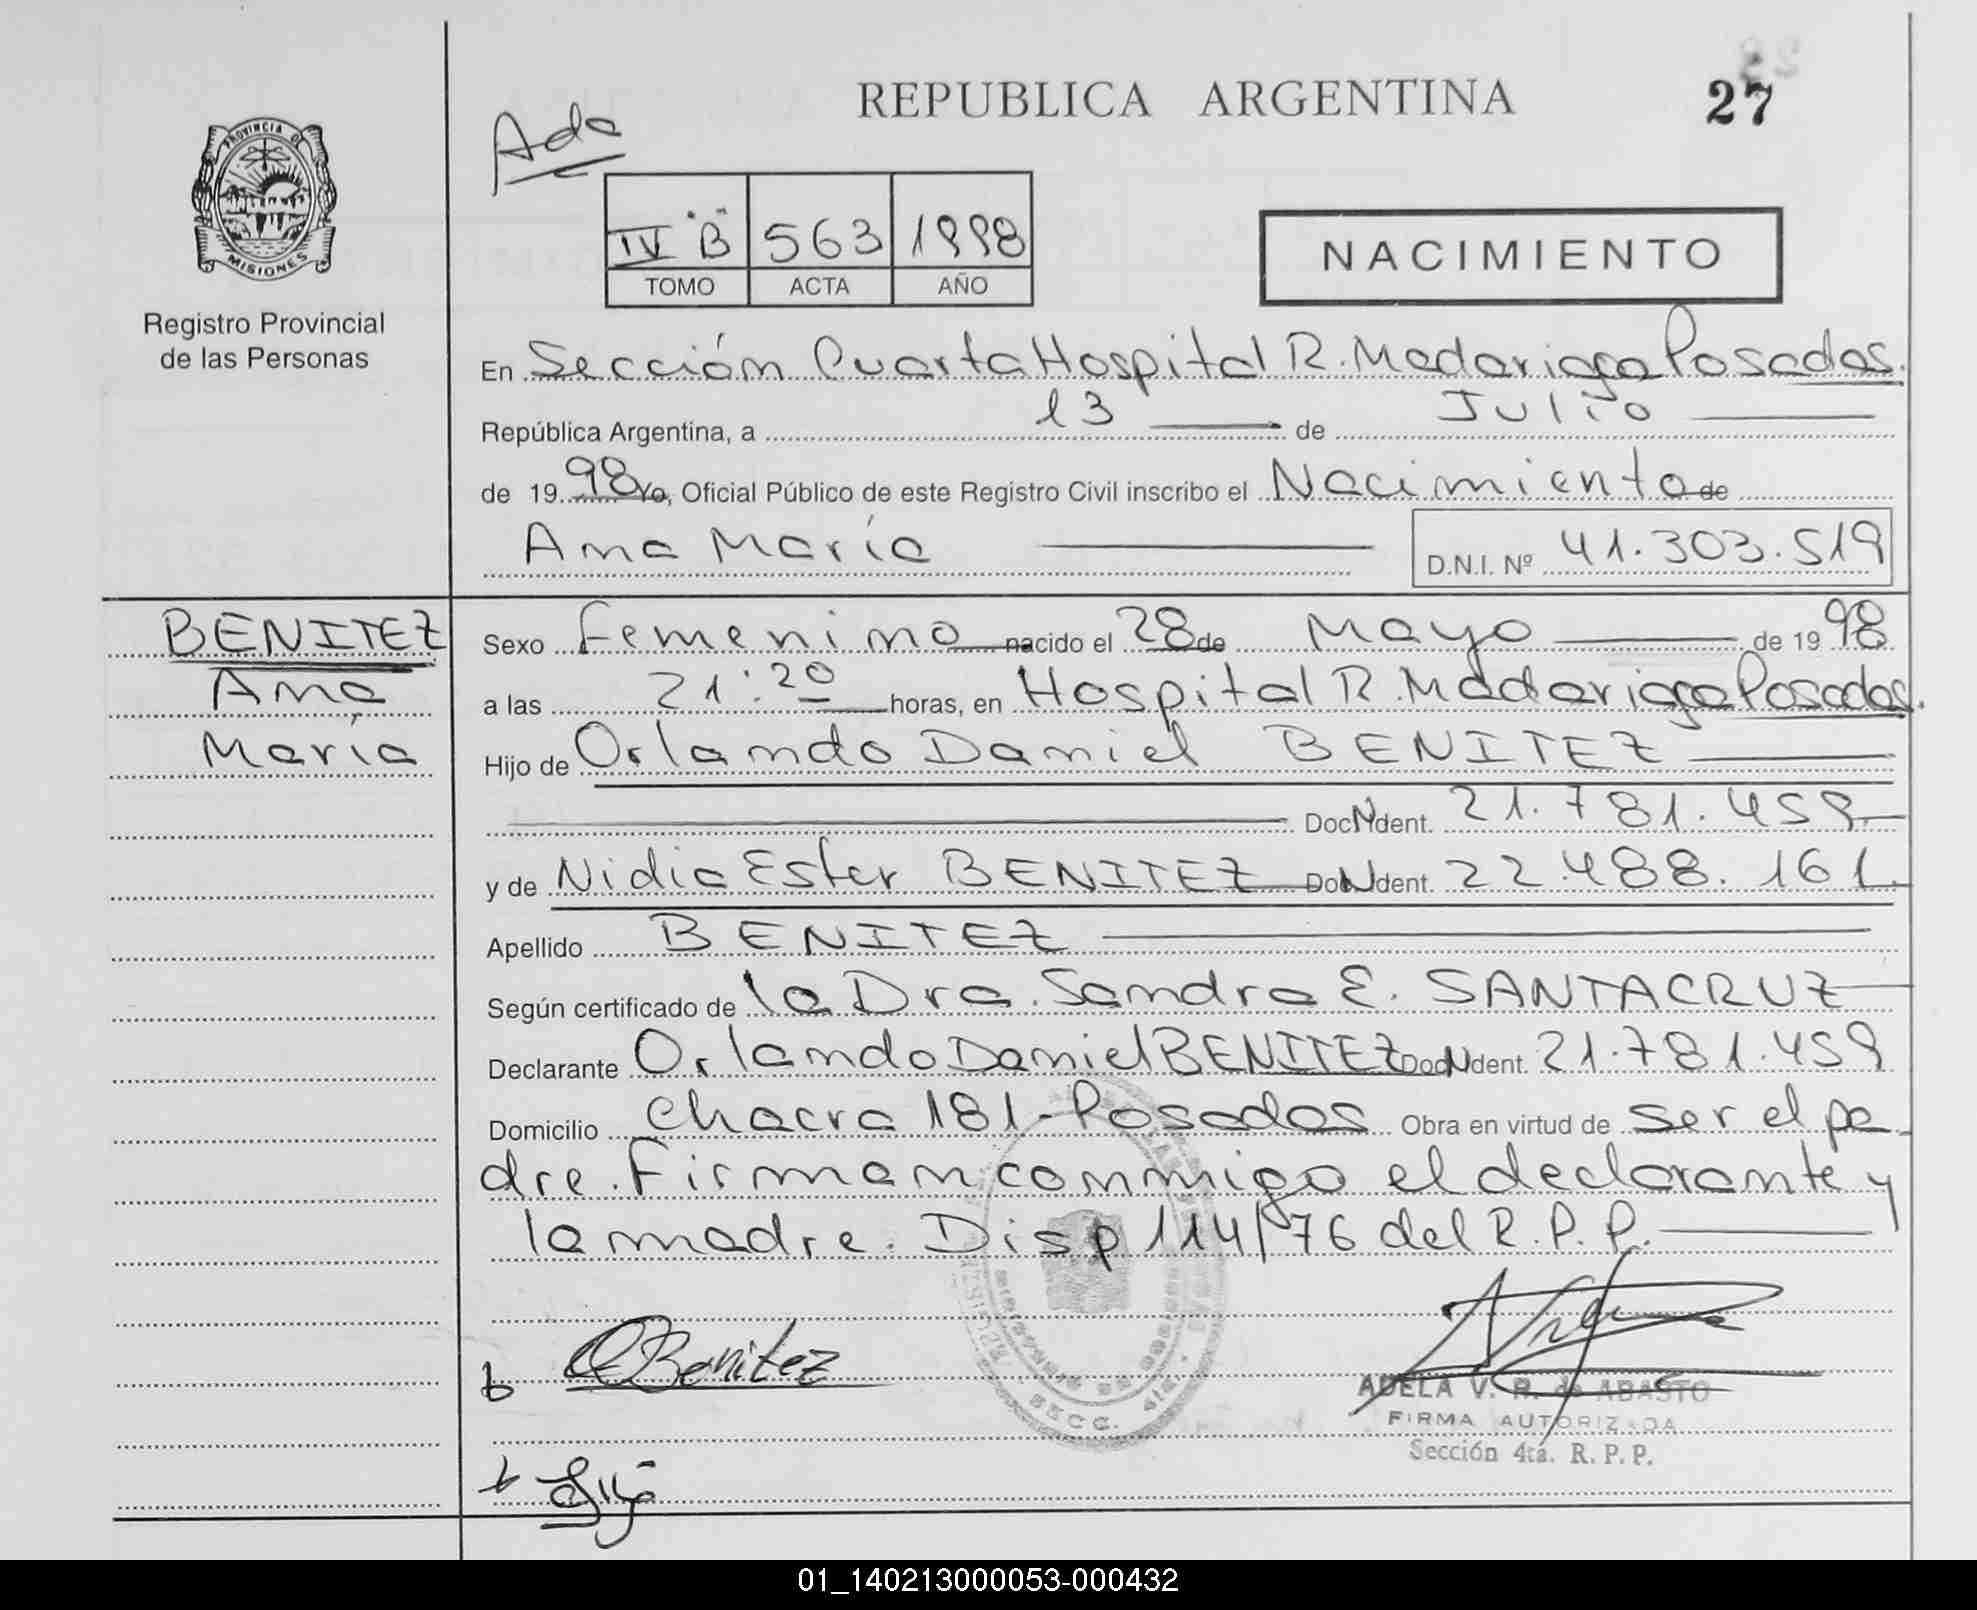 REPUBLICA ARGENTINA
27
PROVINCIA DE
MISIONES
Registro Provincial
de las Personas
IV "B" 563 1998
TOMO ACTA AÑO
NACIMIENTO
En Sección Cuarta Hospital R. Madariaga Posadas.
República Argentina, a 13 de Julio
de 19 98 Yo, Oficial Público de este Registro Civil inscribo el Nacimiento de
Ana María
D.N.I. Nº 41.303.519
BENITEZ
Ana
María
Sexo Femenino nacido el 28 de Mayo de 19 98
a las 21:20 horas, en Hospital R. Madariaga Posadas.
Hijo de Orlando Daniel BENITEZ
Doc. N Ident. 21.781.459
y de Nidia Ester BENITEZ Doc. N Ident. 22.488.161.
Apellido BENITEZ
Según certificado de la Dra. Sandra E. SANTACRUZ
Declarante Orlando Daniel BENITEZ Doc. N Ident. 21.781.459
Domicilio Chacra 181 - Posadas Obra en virtud de ser el pa
dre. Firman conmigo el declarante y
la madre. Disp 114/76 del R.P.P.
OBenitez
ADELA V. R. de ABASTO
FIRMA AUTORIZADA
Sección 4ta. R. P. P.
SECC. 4ta.
01_140213000053-000432